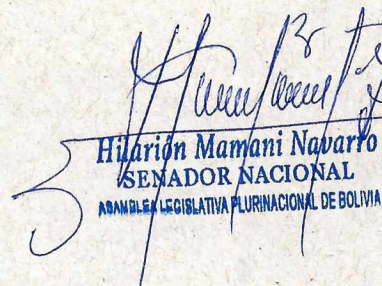 Hilarión Mamani Navarro
SENADOR NACIONAL
ASAMBLEA LEGISLATIVA PLURINACIONAL DE BOLIVIA